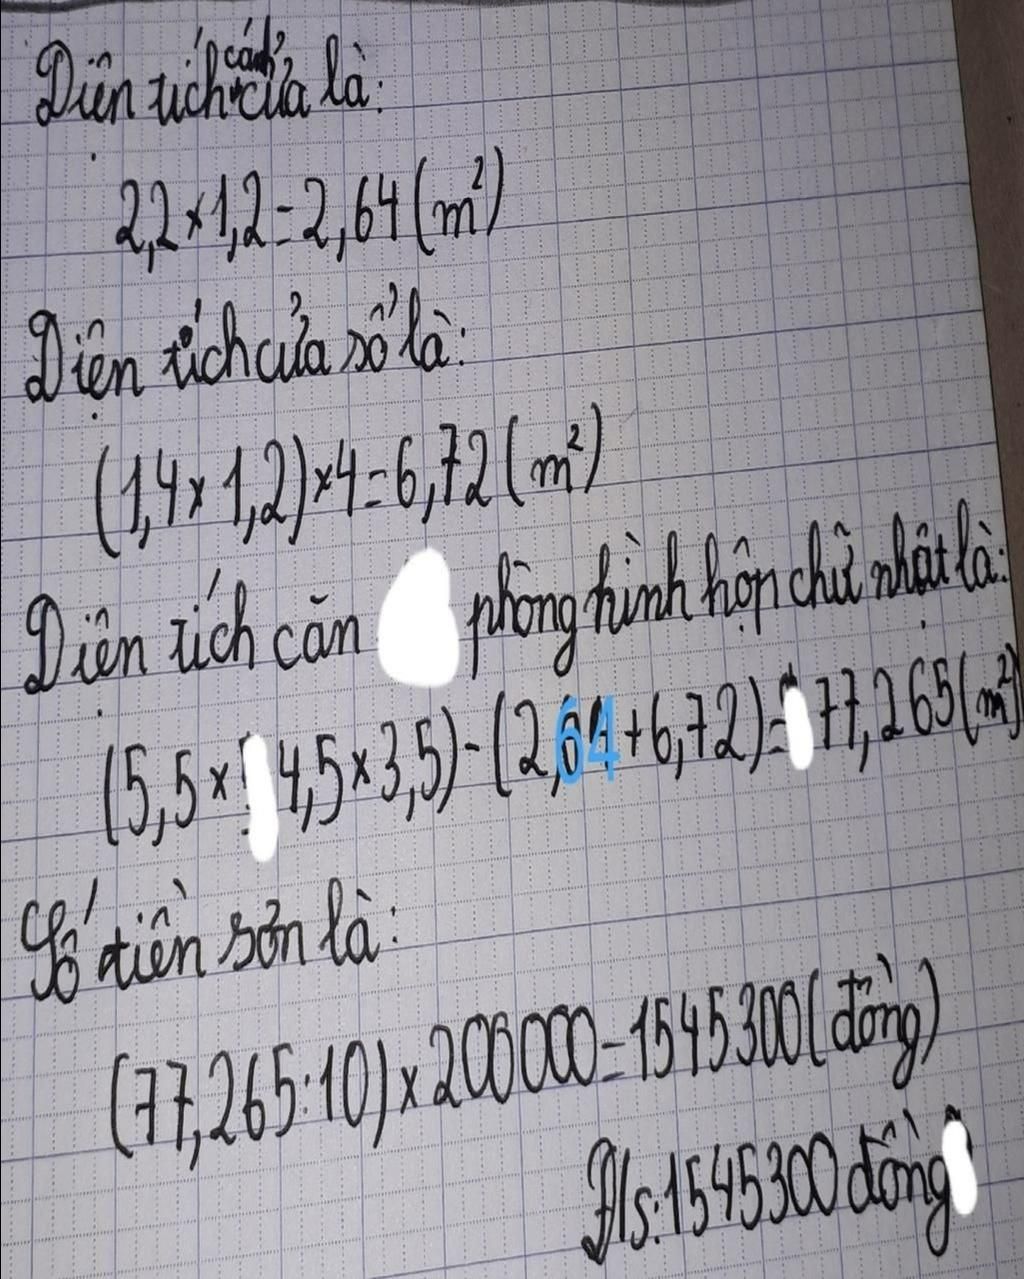 Diện tích cánh cửa là:
2,2 × 1,2 = 2,64 (m²)
Diện tích cửa sổ là:
(1,4 × 1,2) × 4 = 6,72 (m²)
Diện tích căn phòng hình hộp chữ nhật là:
(5,5 × 4,5 × 3,5) - (2,64 + 6,72) = 77,265 (m²)
Số tiền sơn là:
(77,265 : 10) × 200000 = 1545300 (đồng)
Đ/s: 1545300 đồng